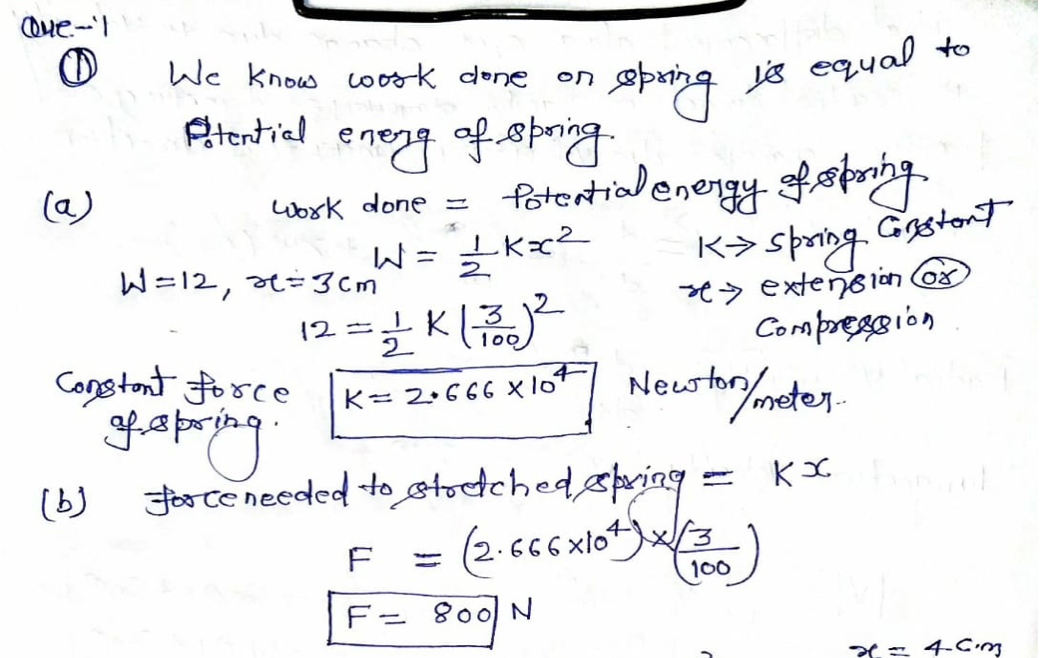 Que-1
① We know work done on spring is equal to
Potential energ of spring.
(a) work done = Potential energy of spring
W = 1/2 Kx² K→ spring Constant
W=12, x=3cm x→ extension or
12 = 1/2 K(3/100)² Compression
Constant force K= 2.666 x10⁴ Newton/meter.
of spring.
(b) force needed to stretched spring = Kx
F = (2.666x10⁴)x(3/100)
F= 800 N
x = 4-cm